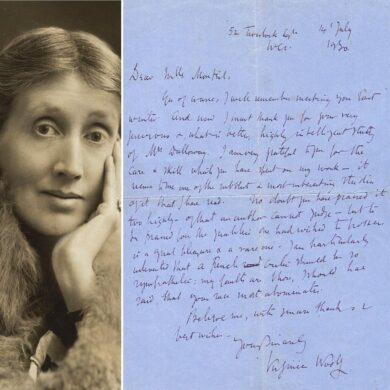 52 Tavistock Sqre 14th July
WC1 1930
Dear Mlle
Yes of course, I well remember meeting you last
winter. And now I must thank you for your very
generous & what is better, highly intelligent study
of Mrs Dalloway. I am very grateful to you for the
care & skill which you have spent on my work – it
seems to me one of the and most interesting studies
of it that I have read. No doubt you have praised it
too highly – of that an author cannot judge – but to
be praised for the qualities one had wished to possess
is a great pleasure & a rare one. I am particularly
interested that a French critic should be so
sympathetic; my faults are those, I should have
said that your race most abominates
Believe me, with sincere thanks &
best wishes –
Yours sincerely
Virginia Woolf